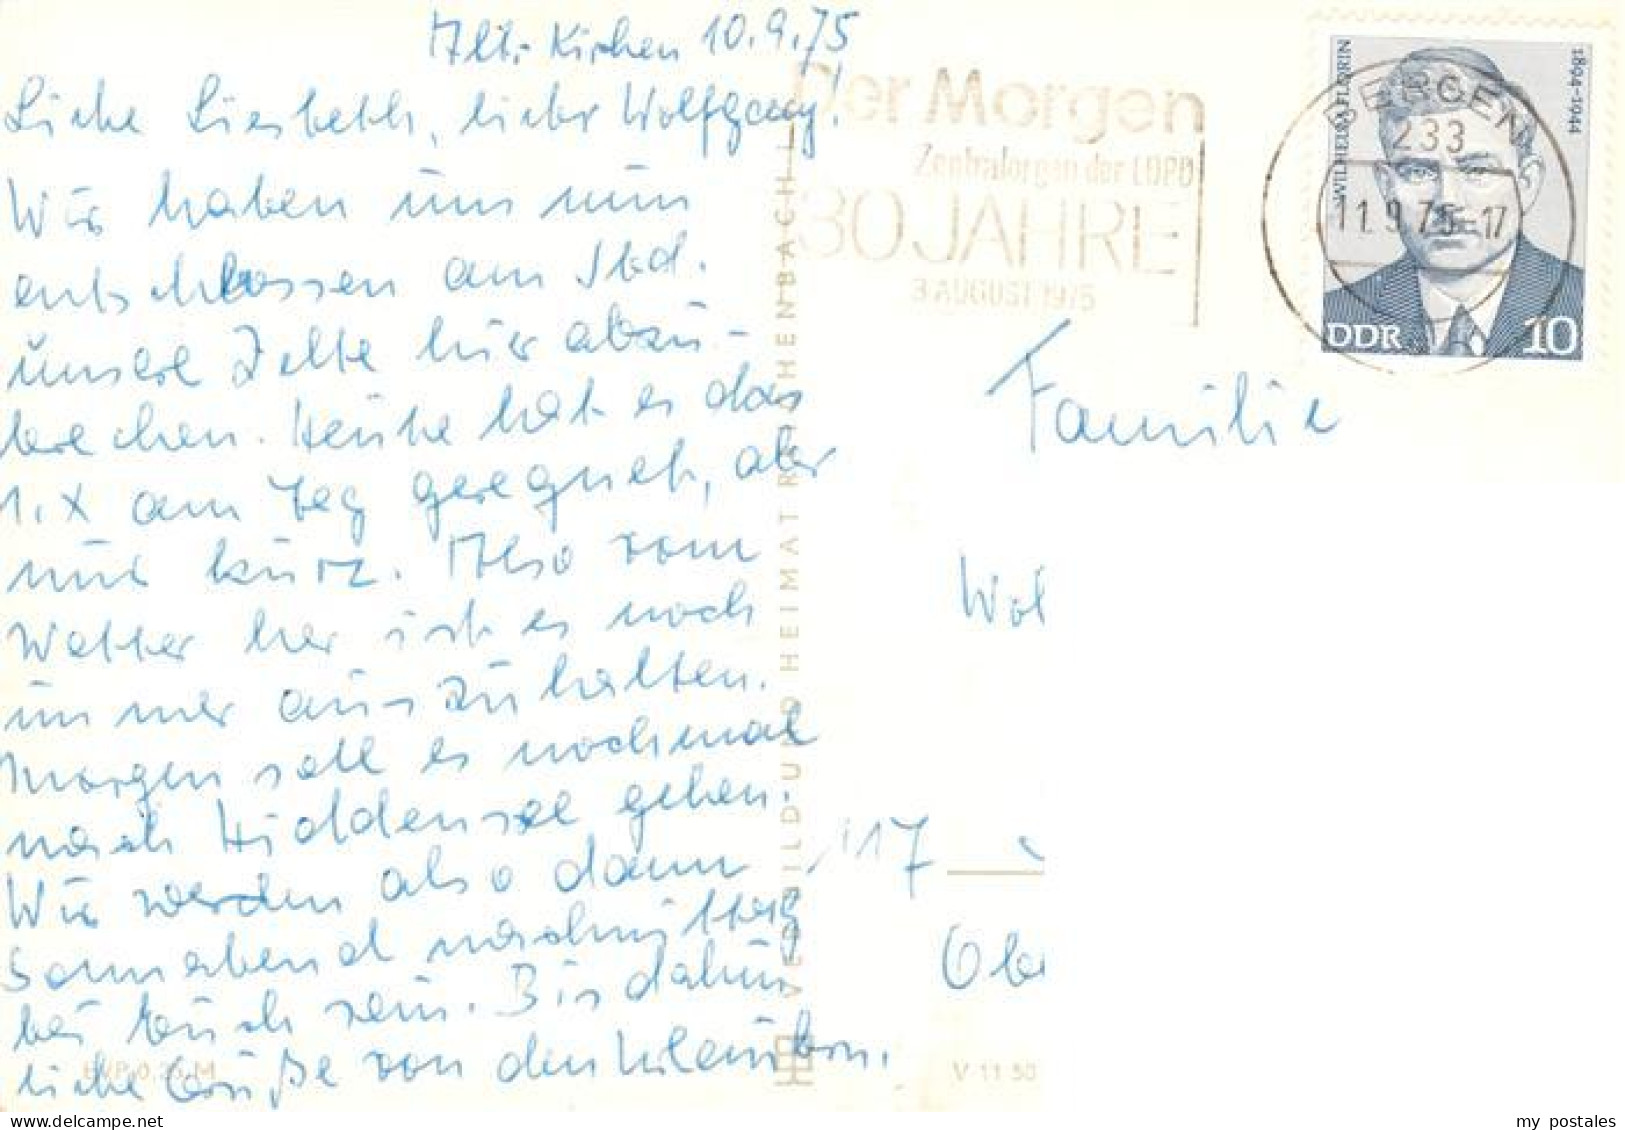 Alt-Kirchen 10.9.75
Liebe Liesbeth, lieber Wolfgang!
Wir haben uns nun
entschlossen am Sbd.
unsere Zelte hier abzu-
brechen. Heute hat es das
1.X am Tag geregnet, aber
nur kurz. Also vom
Wetter her ist es noch
immer auszuhalten.
Morgen soll es nochmal
nach Hiddensee gehen.
Wir werden also dann
Sonnabend nachmittag
bei Euch sein. Bis dahin
liebe Grüße von den
EVP 0,25 M
VEB BILD UND HEIMAT REICHENBACH
V 11 50
Der Morgen
Zentralorgan der LDPD
30 JAHRE
3. AUGUST 1975
BERGEN
233
11.9.75-17
WILHELM FLORIN
1894-1944
DDR 10
Familie
Wol
17
Obe
my postales